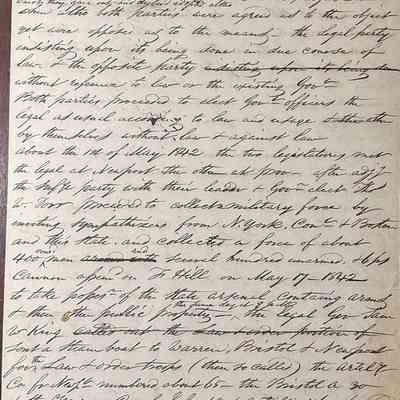 when altho both Parties were agreed as to the object
yet were opposed as to the means, - the legal party
insisting upon its being done in due course of
law & the opposite party insisting upon its being done
without reference to law or the existing Govt.
Both parties proceeded to elect Govt officers the
legal as usual according to law and usage & the other
by themselves without law & against law
about the 1st of May 1842 the two legislatures met
the legal at Newport the other at prov - after adjt
the party with their leader & Govr elect Ths
W. Dorr proceeded to collect a military force by
inviting sympathizers from N. York, Cont & Boston
and this State, and collected a force of about
400 men and several hundred unarmed & 6 ps
Cannon on Ft Hill on May 17 - 1842
to take possn. of the State arsenal containing arms
& then the public property, the legal Govr then
W King called out the Law & order portion of
sent a steam boat to Warren, Bristol & Newport
for the Law & order troops (then so called) the Artily
Co for Newpt numbered about 65 - the Bristol A 30